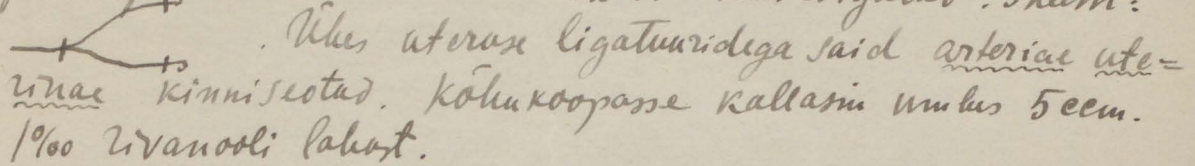 . Ühes uteruse ligatuuridega said arteriae ute=
rinae kinniseotud. Kõhukoopasse kallasin umbes 5 ccm.
1‰ rivanooli lahust.